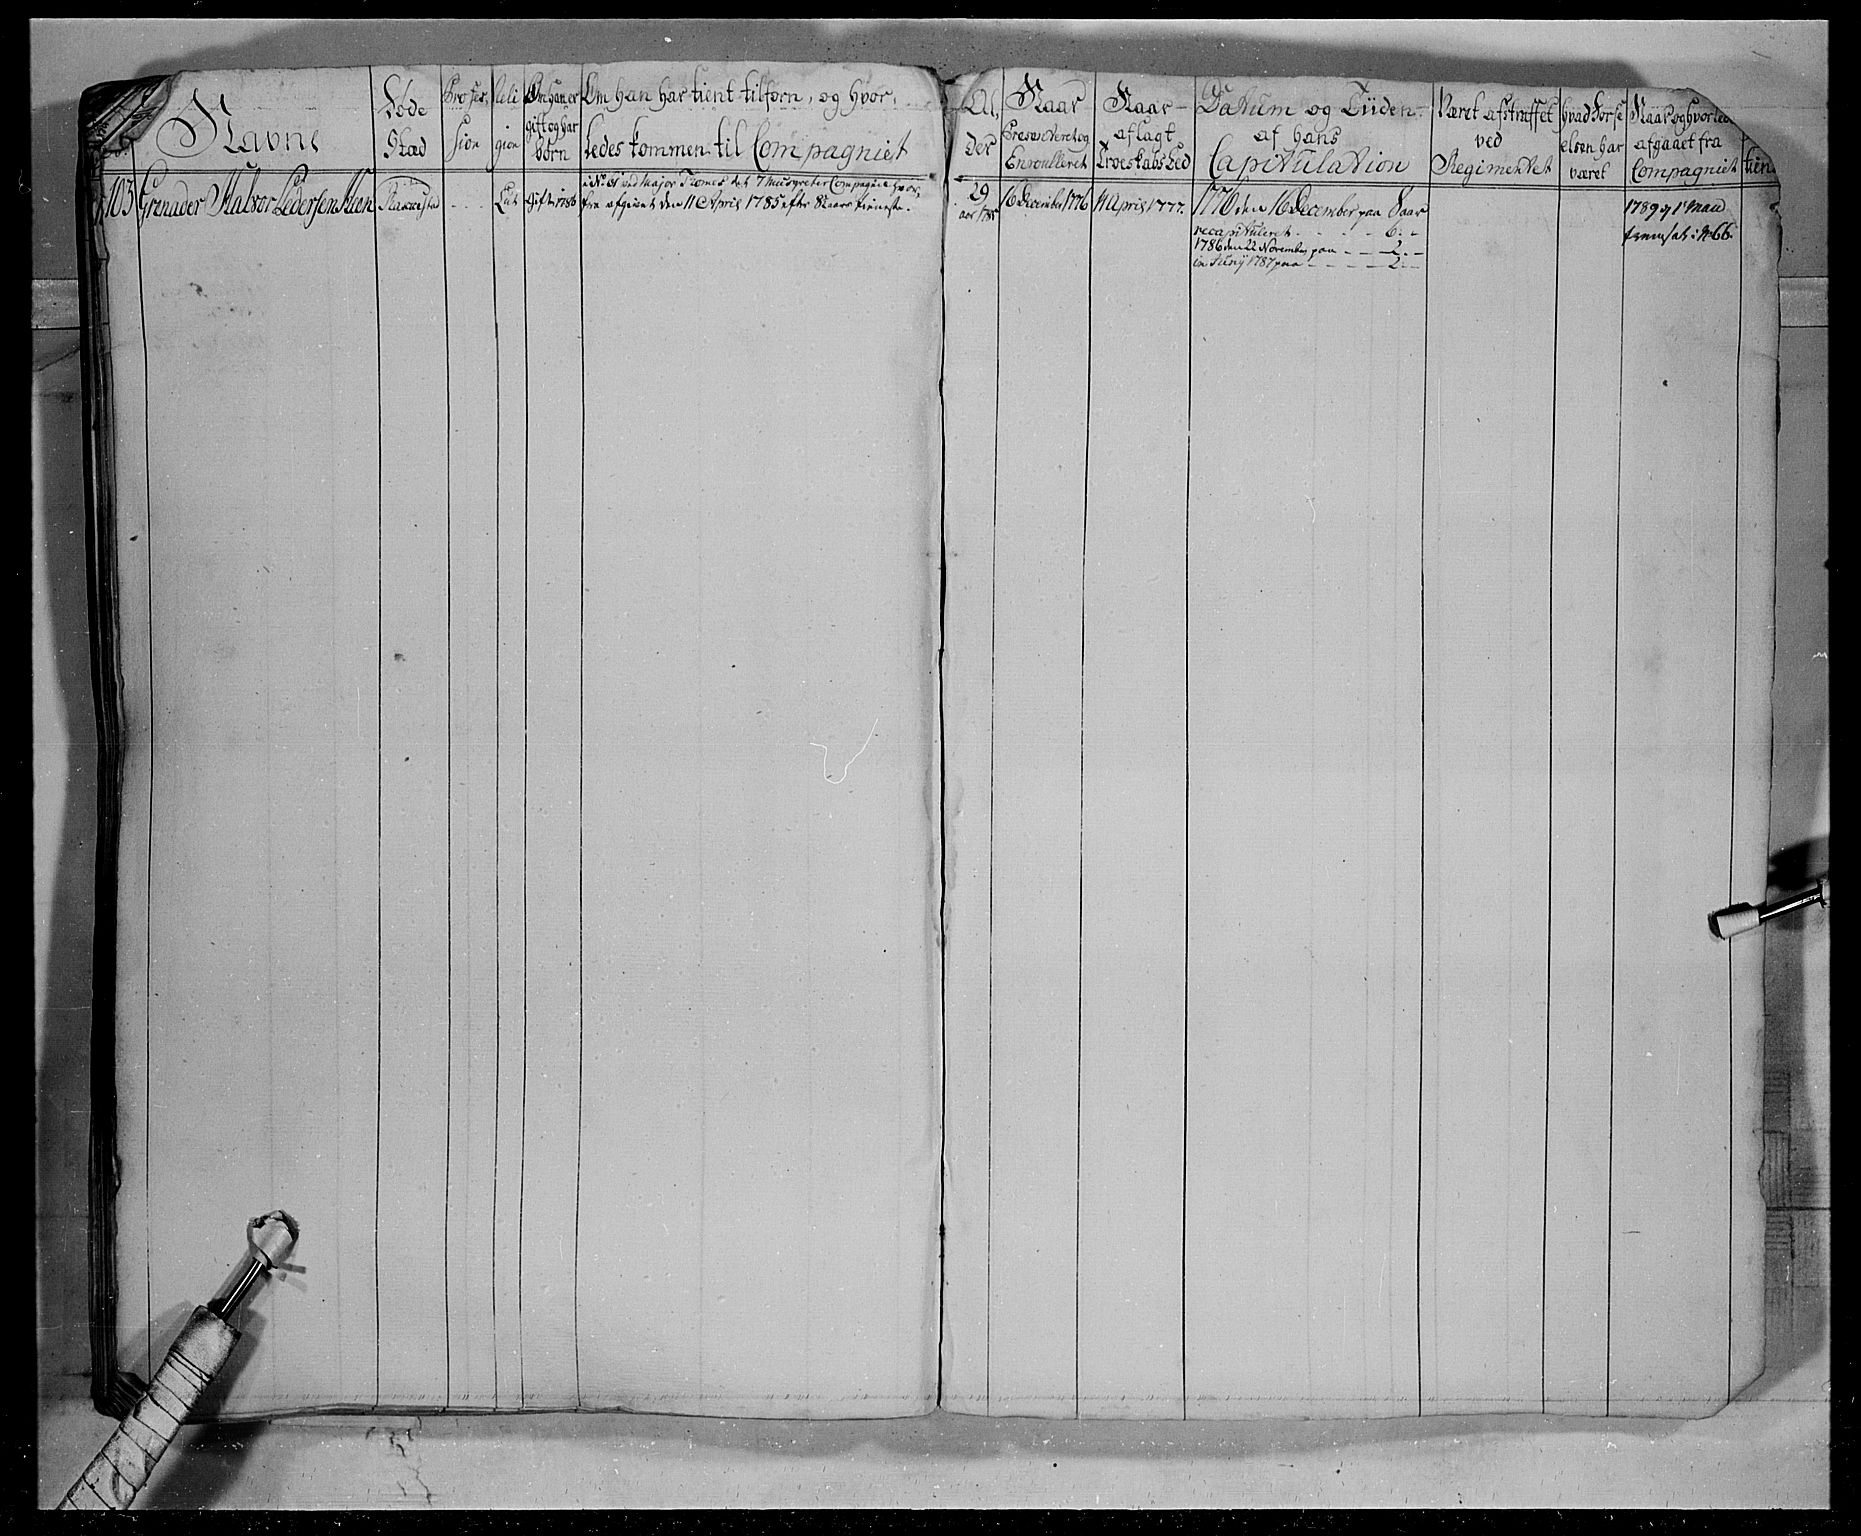 Navne
Føde
Stæd
Profes,
sion
Reli
gion
Om han er
gift og har
børn
Om han har tient tilforn, og hvor,
ledes kommen til Compagniet
Al,
der
Naar
Presenteret og
Enroulleret
Naar
aflagt
Troeskabs Eed
Datum og Tiiden
af hans
Capitulation
Været afstraffet
ved
Regimentet
hvad Forse
elsen har
været
Naar og hvorled
afgaaet fra
Compagniet
tien
103 Grenader Halvor Pedersen
Rakkestad
- - -
Lut
Gift 1786
No 61 ved Major Thomes det 7 Musqveter Compagnie hvor,
fra afgivet den 11 April 1785 efter 8 aars tieneste.
29
aar 1785
16 December 1776
11 April 1777.
1776 den 16 December paa 8 aar
recapituleret - - - - 6 -
1786 den 22 November paa - - - 2 -
in Junÿ 1787 paa - - - - 2 -
1789 9 1te Maii
fremsat i No 66.